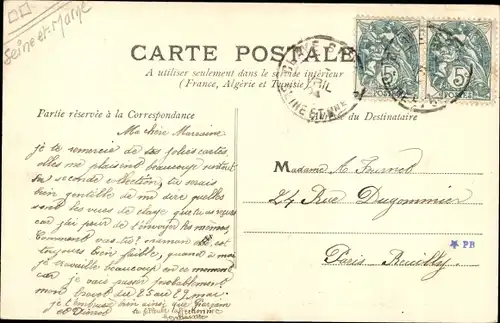 Seine-et-Marne
CARTE POSTALE
A utiliser seulement dans le service intérieur
(France, Algérie et Tunisie)
Partie réservée à la Correspondance
du Destinataire
Ma chère Marraine
je te remercie de tes jolies cartes,
elles me plaisent beaucoup surtout
ta seconde collection, tu serais
bien gentille de me dire quelles
sont les vues de Claye que tu as reçues
car j'ai peur de t'envoyer les mêmes.
Comment vas-tu? maman est
toujours bien faible, quand à moi
je travaille beaucoup en ce moment
car je vais passer probablement
mon brevet du 25 au 29 mai.
je t'embrasse bien ainsi que Parrain
et
ta filleule
Madame A. Fournet
24 Rue Dugommier
Paris Reuilly
5
5
POSTES
SEINE ET MARNE
PB